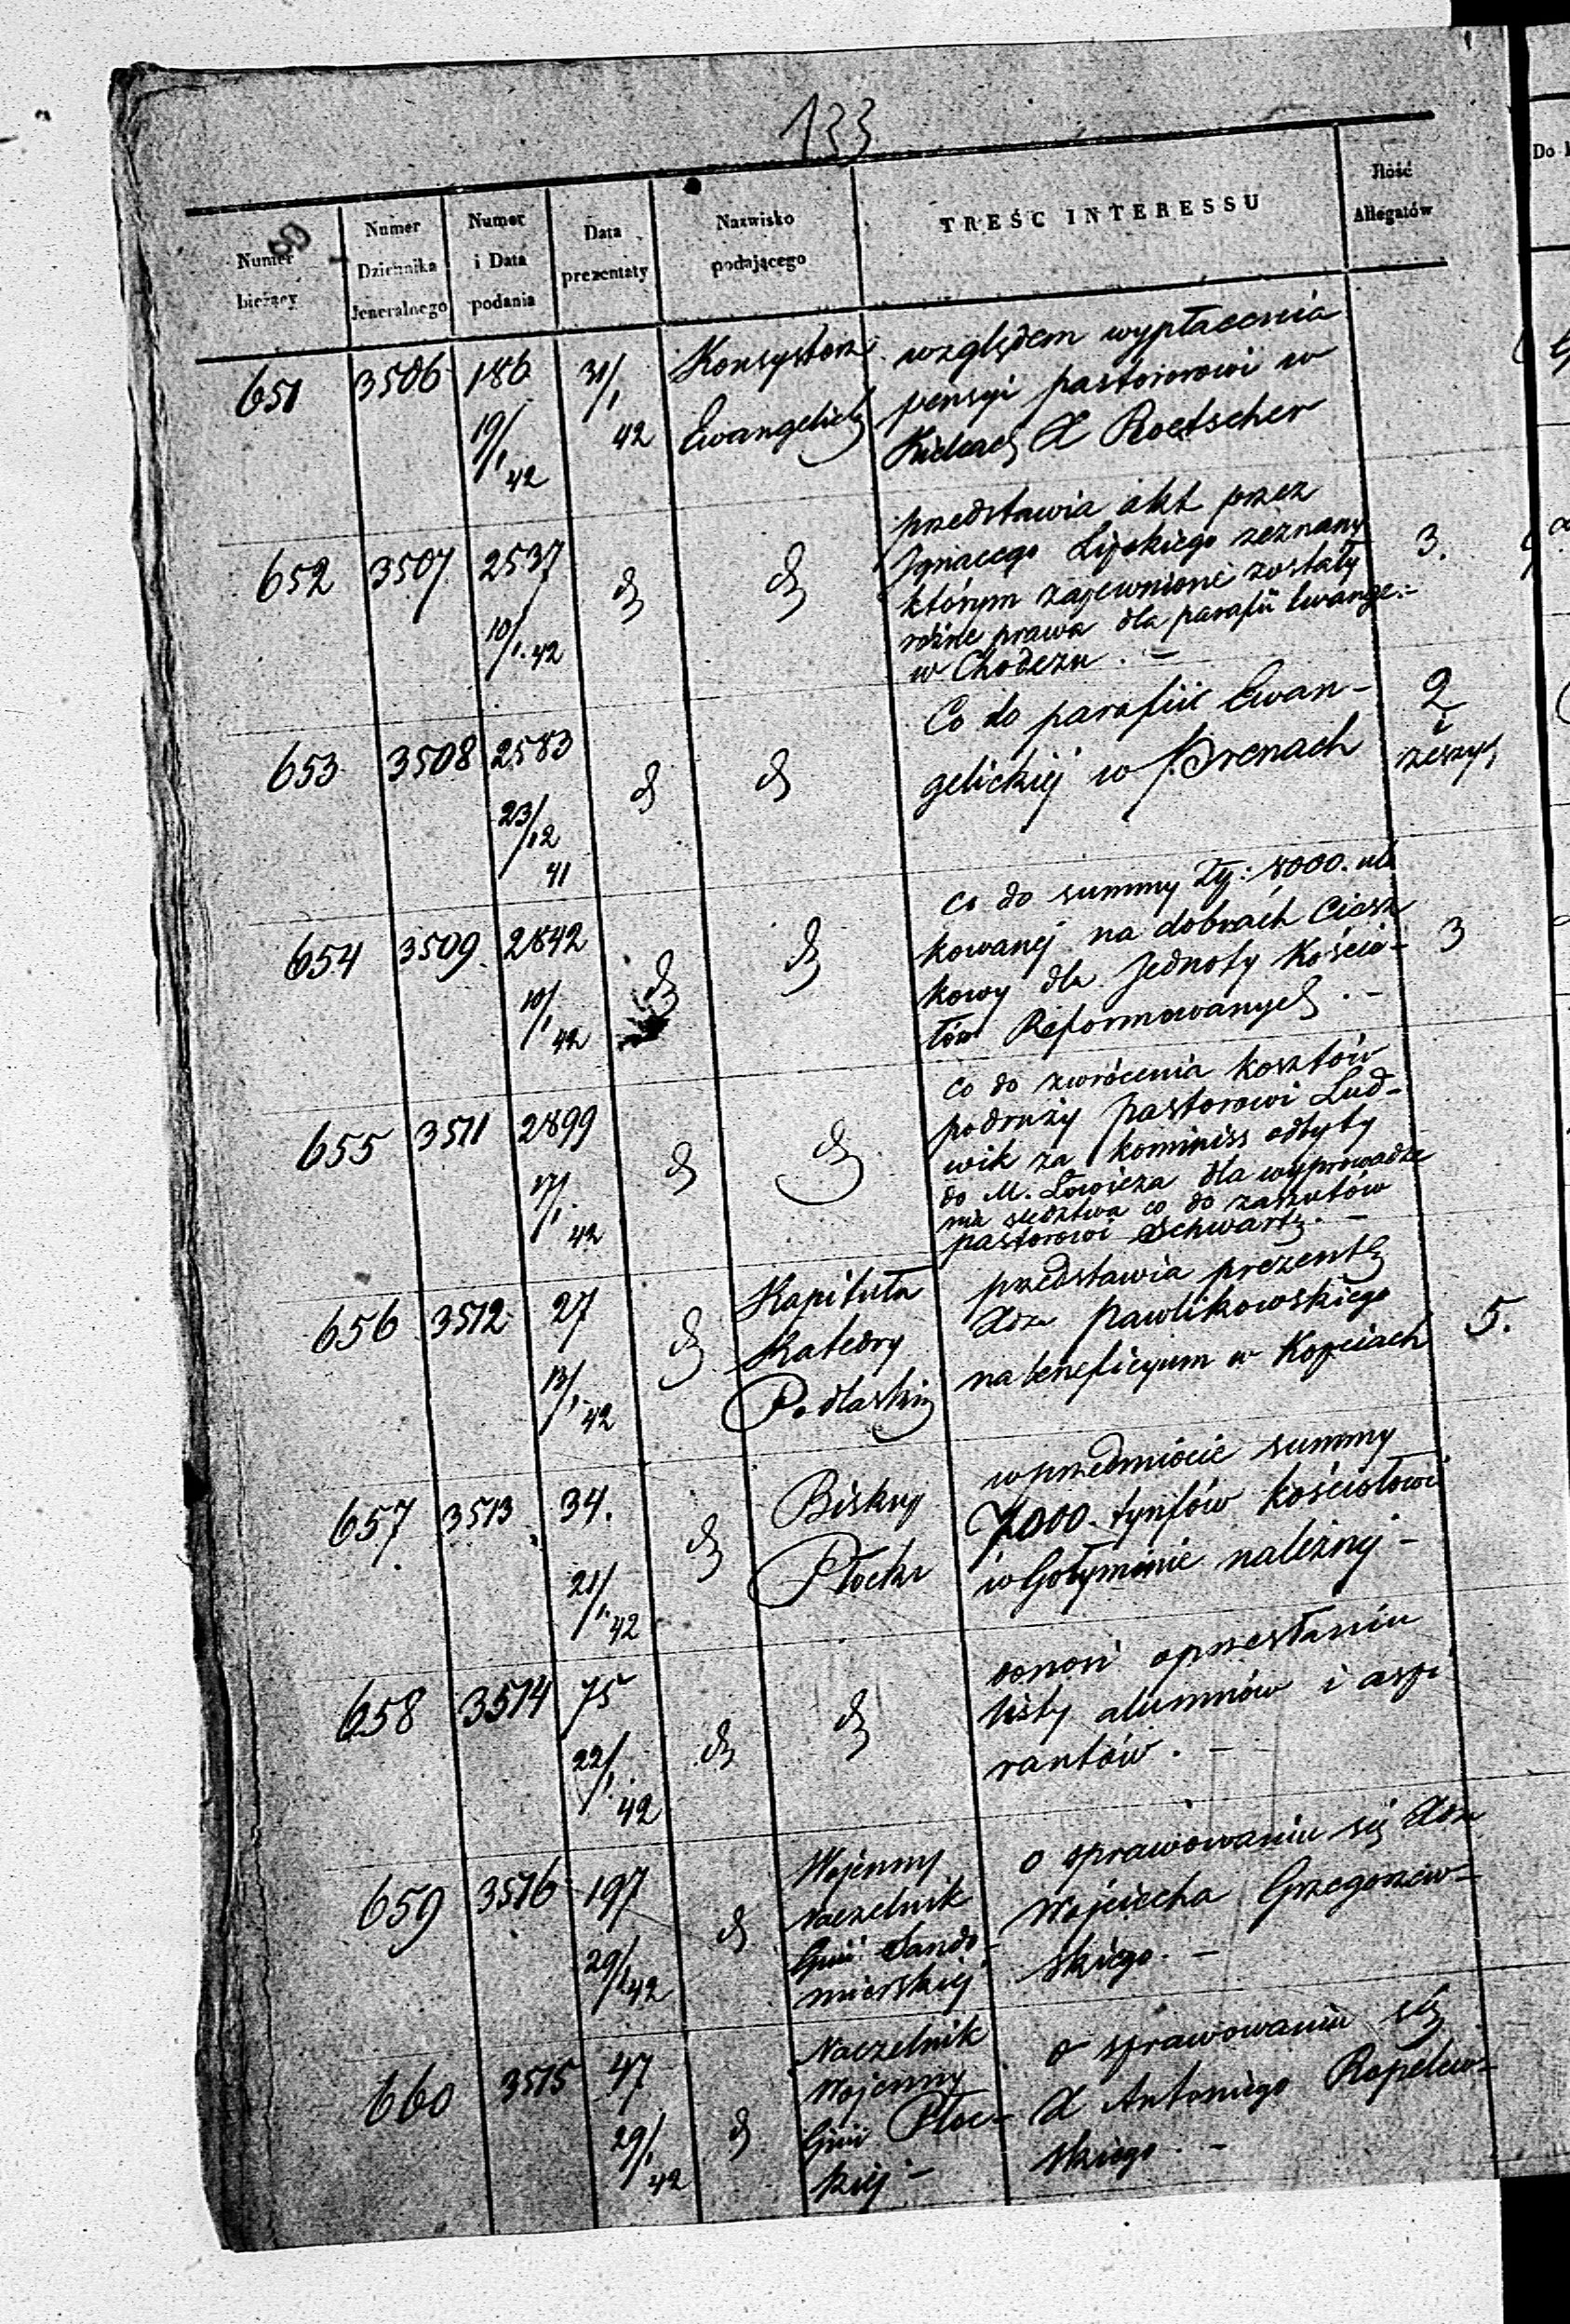 133
Numer
bieżący
Numer
Dziennika
Jeneralnego
Numer
i Data
podania
Data
prezentaty
Nazwisko
podającego
TREŚC INTERESSU
Jlość
Allegatów
Do
651 3506 186 19/1 42 31/1 42
Konsystorz
Ewangelick
względem wypłacenia
pensyi pastorowi w
Kielcach X Roetscher
652 3507 2537 10/1. 42
przedstawia akt przez
Ignacego Lipskiego zeznany
którym zapewnione zostały
różne prawa dla parafii Ewange.-
w Chodczu . -
3.
653 3508 2583 23/12 41
Co do parafii Ewan-
gelickiej w Prenach
2
i
zeszyt
654 3509. 2842 10/1 42
co do summy Złp: 8000. ulo
kowanej na dobrach Ciesz
kowy dla Jednoty Kościo-
łów Reformowanych . -
3
655 3511 2899 17/1 42
co do zwrócenia kosztów
podruży pastorowi Lud-
wik za kommiss odbyty
do M. Łowicza dla wyprowadze
nia śledztwa co do zarzutów
pastorowi Schwartz. -
656 3512 27 13/1 42
Kapituła
Katedry
Podlaskiej
przedstawia prezentę
Xdza Pawlikowskiego
na beneficyum w Kopciach
5.
657 3513 34. 21/1. 42
Biskup
Płocki
w przedmiocie summy
7000 tynfów kościołowi
w Gołyminie należnej -
658 3514 75 22/1. 42
donosi o przesłaniu
listy alumnów i aspi
rantów . -
659 3516 197 29/1 42
Wojenny
Naczelnik
Gnii Sando-
mierskiej
o sprawowaniu się Xdza
Wojciecha Grzegorzew-
skiego. -
660 3515 47 29/1 42
Naczelnik
Wojenny
Gnii Płoc-
kiej -
o sprawowaniu się
X Antoniego Ropelew-
skiego. -